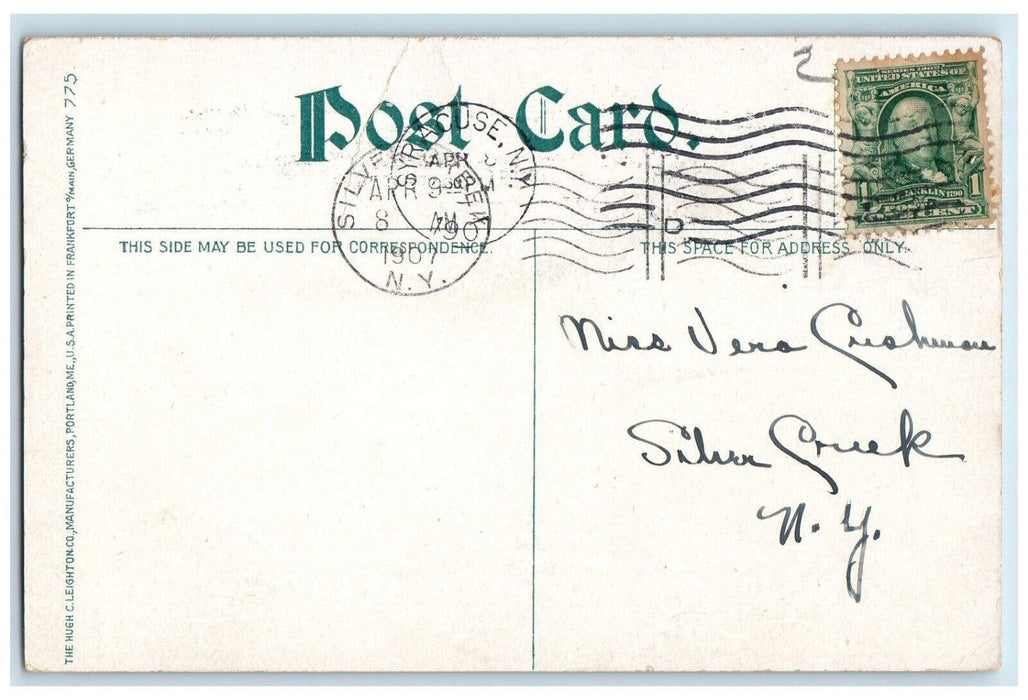 Post Card.
SYRACUSE, N.Y.
APR
SILVER CREEK
APR 9
8 AM
1907
N.Y.
D
SERIES 1902
UNITED STATES OF
AMERICA
1 FRANKLIN 1790 1
ONE CENT
THIS SIDE MAY BE USED FOR CORRESPONDENCE.
THIS SPACE FOR ADDRESS ONLY.
Miss Vera Cushman
Silver Creek
N.Y.
THE HUGH C. LEIGHTON CO., MANUFACTURERS, PORTLAND, ME., U.S.A. PRINTED IN FRANKFORT o/MAIN, GERMANY 775.